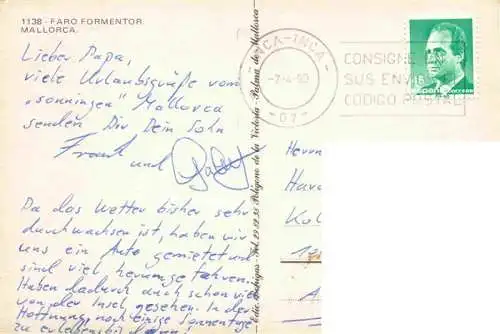 1138 - FARO FORMENTOR.
MALLORCA.
Lieber Papa,
viele Urlaubsgrüße vom
"sonningen" Mallorca
senden Dir Dein Sohn
Frank und
Da das Wetter bisher sehr
durchwachsen ist, haben wir
uns ein Auto gemietet und
sind viel herumgefahren.
Haben dadurch auch schon viel
von der Insel gesehen. In der
Hoffnung noch einige Sonnentage
zu erleben bis dann!
Palma de Mallorca
INCA-INCA
-7-4-90
-07-
CONSIGNE EN
SUS ENV
CODIGO POSTAL
Herrn
Ha